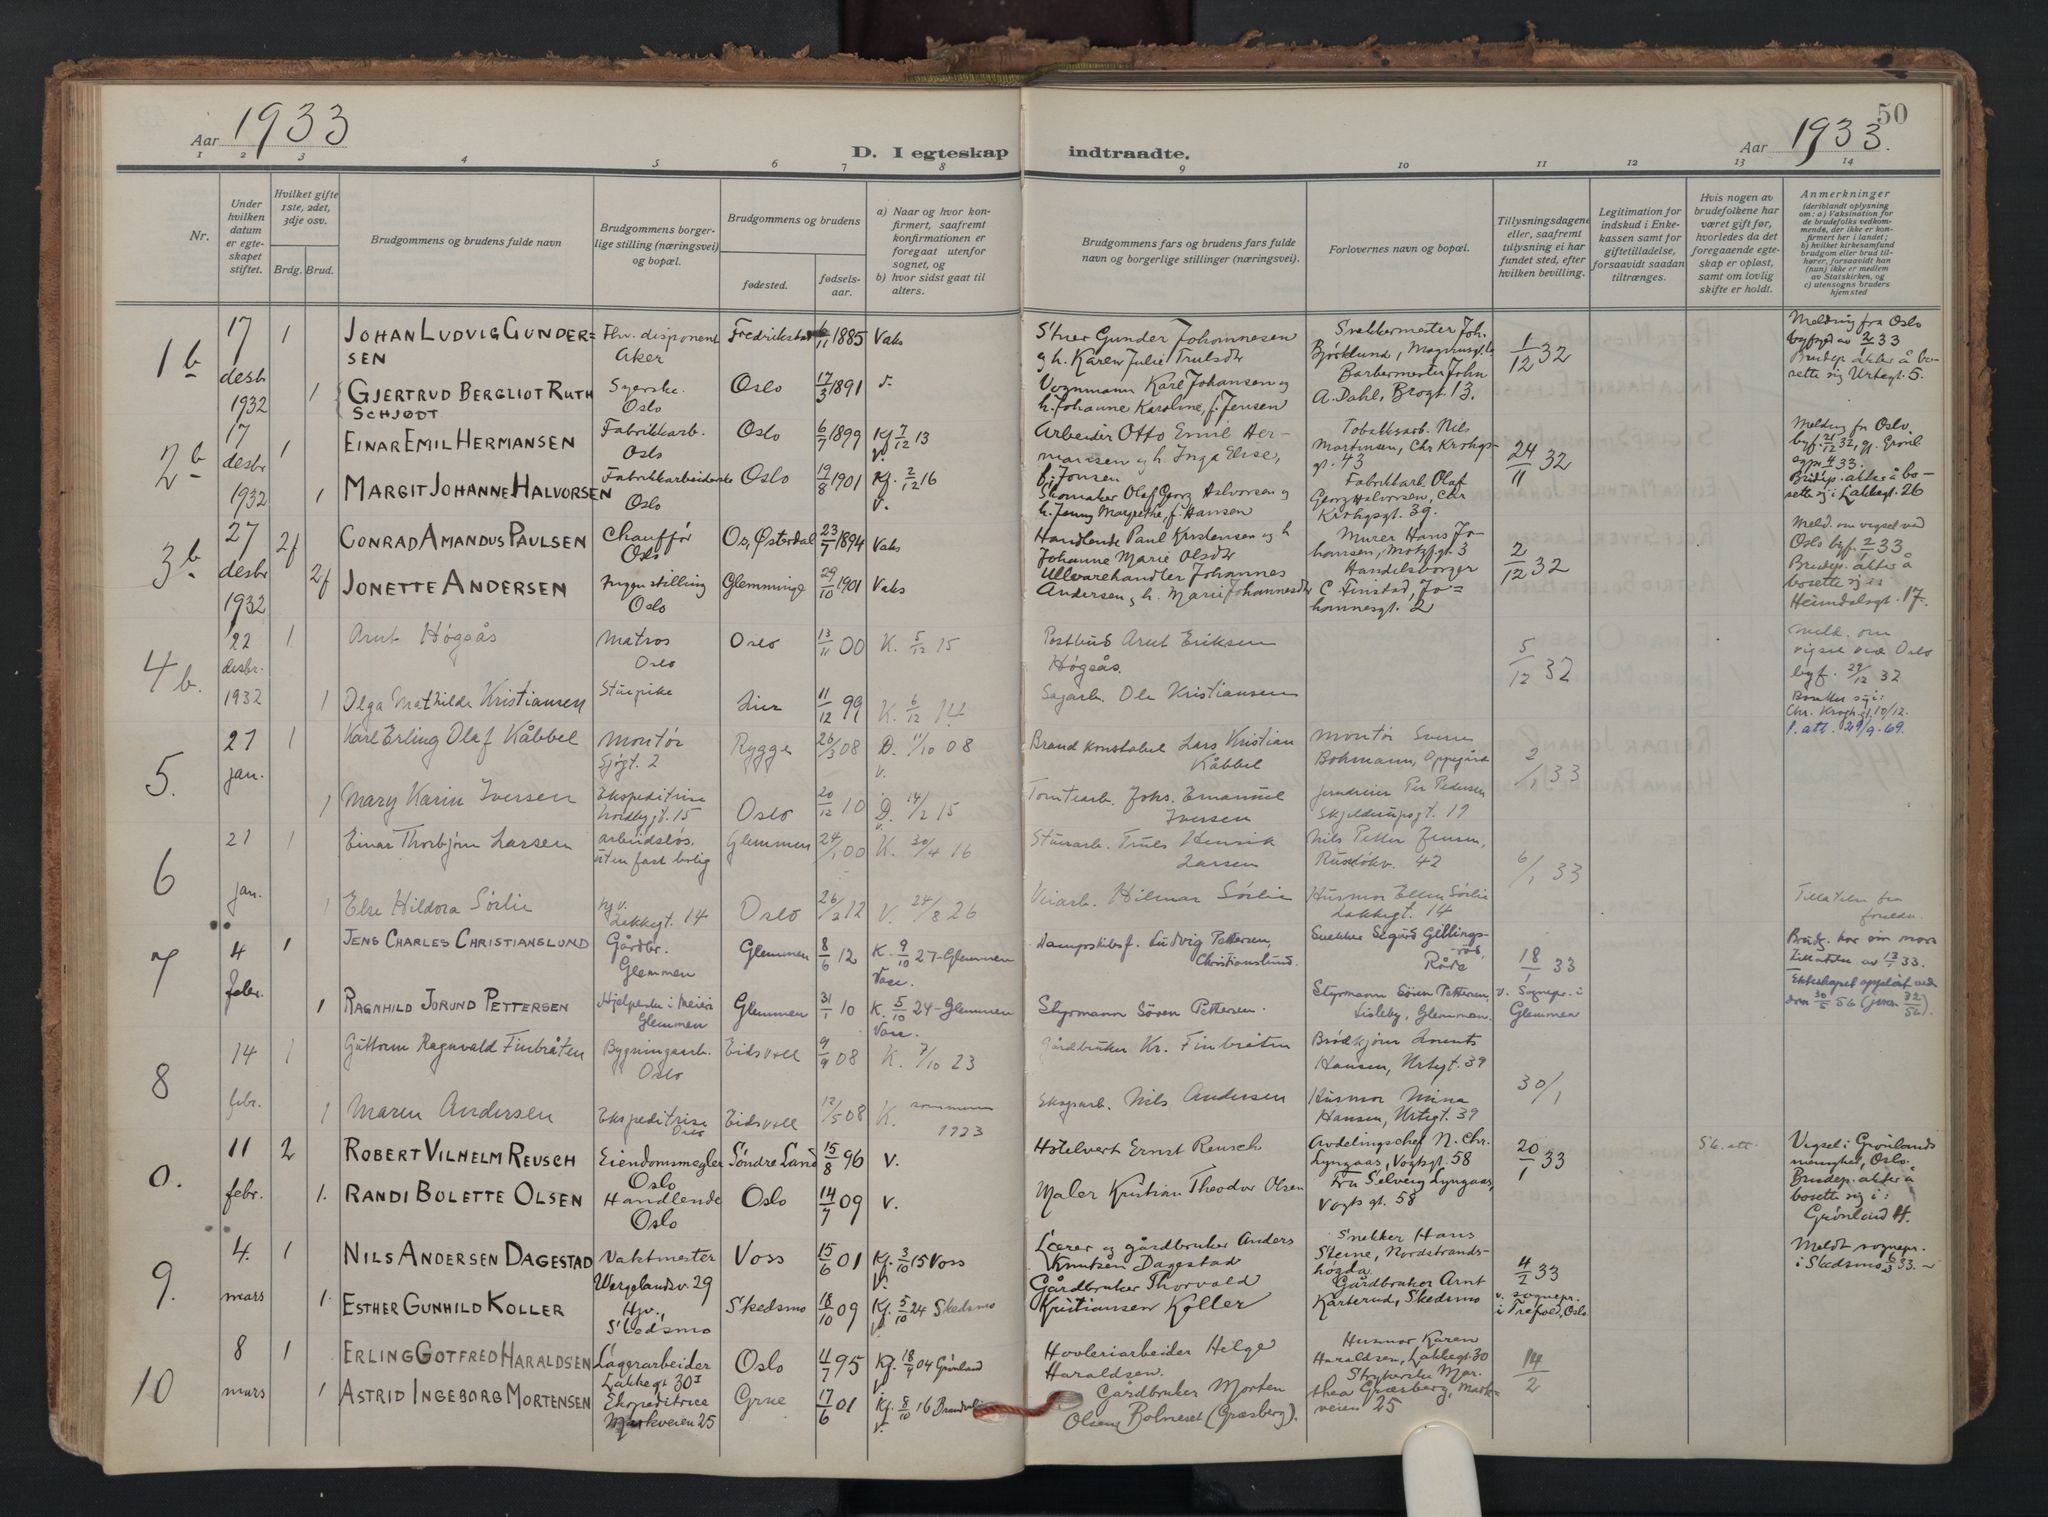 Aar 1933
50
D. I egteskap indtraadte.
Aar 1933.
1 2 3 4 5 6 7 8 9 10 11 12 13 14
Nr.
Under hvilken datum er egteskapet stiftet.
Hvilket gifte 1ste, 2det, 3dje osv.
Brdg. Brud.
Brudgommens og brudens fulde navn
Brudgommens borgerlige stilling (næringsvei) og bopæl.
Brudgommens og brudens
fødested.
fødselsaar.
a) Naar og hvor konfirmert, saafremt konfirmationen er foregaat utenfor sognet, og
b) hvor sidst gaat til alters.
Brudgommens fars og brudens fars fulde navn og borgerlige stillinger (næringsvei).
Forlovernes navn og bopæl.
Tillysningsdagene eller, saafremt tillysning ei har fundet sted, efter hvilken bevilling.
Legitimation for indskud i Enkekassen samt for giftetilladelse, forsaavidt saadan tiltrænges.
Hvis nogen av brudefolkene har været gift før, hvorledes da det foregaaende egteskap er opløst, samt om lovlig skifte er holdt.
Anmerkninger
(deriblandt oplysning om: a) Vaksination for de brudefolks vedkommende, der ikke er konfirmert her i landet; b) hvilket kirkesamfund brudgom eller brud tilhører, forsaavidt han (hun) ikke er medlem av Statskirken, og c) utensogns bruders hjemsted
1b 17 desbr 1932
1 JOHAN LUDVIG GUNDERSEN
Fhv. disponent Aker
Fredrikstad 6/11 1885 Vaks
S'tuer Gunder Johannesen og h. Karen Julie Trulsdtr
Snekkermester Joh. Bjørklund,
1/12 32
Melding fra Oslo byfogd av 2/2 33
Brudep. akter å bosette sig Urtegt. 5.
1 GJERTRUD BERGLIOT RUTH SCHJØDT
Syerske. Oslo
Oslo 17/3 1891
Vognmann Karl Johansen og h. Johanne Karoline, f. Jensen
Barbermester John A. Dahl, Brogt. 13.
2b 17 desbr 1932
1 EINAR EMIL HERMANSEN
Fabrikkarb. Oslo
Oslo 6/7 1899 Kf 7/12 13 v.
Arbeider Otto Emil Hermansen og h. Inga Elise, f. Jonsen
Tobakksarb. Nils Martinsen, Chr Krohgsgt. 43
24/11 32
Melding fra Oslo byf. 21/12 32, gj. Grønl. sgpr 4/1 33.
Brudep. akter å bosette sig i Lakkegt. 26
1 MARGIT JOHANNE HALVORSEN
Fabrikkarbeiderske Oslo
Oslo 19/8 1901 Kf. 2/12 16 v.
Skomaker Olaf Georg Halvorsen og h. Jenny Margrethe, f. Hansen
Fabrikkarb. Olaf Georg Halvorsen, Chr Krohgsgt. 39.
3b. 27 desbr 1932
2f CONRAD AMANDUS PAULSEN
Chauffør Oslo
Os, Østerdal 23/7 1894 Vaks
Handlende Paul Kristensen og h Johanne Marie Olsdtr
Murer Hans Johansen, Motzfgt. 3
2/12 32
Meld. om vigsel ved Oslo byf. 2/2 33
Brudep. akter å bosette sig i: Heimdalsgt. 17.
2f JONETTE ANDERSEN
Ingen stilling Oslo
Glemminge 29/10 1901 Vaks
Ullvarehandler Johannes Andersen og h. Marie Johannesdtr
Handelsborger C Finstad, Johannesgt. 2
4b. 22 desbr. 1932
1 Arnt Høgaas
Matros Oslo
Oslo 13/11 00 K. 5/12 15
Postbud Arnt Eriksen Høgås.
5/12 32
Meld. om vigsel ved Oslo byf. 29/12 32
Bruker sig i: Chr. Krogh gt. 10/12.
l. att. 29/9-69.
1 Olga Mathilde Kristiansen
Stuepike
Lier 11/12 99 K. 6/12 14
Sagarb. Ole Kristiansen
5. 21 jan.
1 Karl Erling Olaf Kåbbel
Montør Sjøgt. 2
Rygge 26/3 08 D. 11/10 08 v.
Brandkonstabel Lars Kristian Kåbbel
Montør Svenn Bohmann, Oppegård
2/1 33
1 Mary Karin Iversen
Ekspeditrise Nordbygt. 15
Oslo 20/12 10 D. 14/2 15 v.
Tomtearb. Johs. Emanuel Iversen
Jerndreier Per Pedersen Skjelderupsgt. 19
6 21 jan.
1 Einar Thorbjørn Larsen
arbeidsløs. uten fast bolig
Glemmen 24/1 00 K. 30/4 16
Stuerarb. Truls Henrik Larsen
Nils Petter Jensen, Ruseløkv. 42
6/1 33
1 Else Hildora Sørlie
hjv. Lakkegt. 14
Oslo 26/2 12 V. 24/8 26
Veiarb. Hilmar Sørlie
Husmor Ellen Sørlie Lakkegt. 14
Tillatelse fra foreldr.
7 4 febr.
1 JENS CHARLES CHRISTIANSLUND
Gårdbr. Glemmen
Glemmen 8/6 12 K. 9/10 27 - Glemmen Vacc.
Dampskibsf. Ludvig Pettersen, Christianslund.
Snekker Sigurd Gillingsrød, Råde
18/1 33
Brudg. har sin mors tillatelse av 13/1 33.
Ekteskapet oppløst ved dom 30/5 56
1 RAGNHILD JORUND PETTERSEN
Hjelperske i Meieri Glemmen
Glemmen 31/1 10 K. 5/10 24 - Glemmen Vacc.
Styrmann Søren Pettersen.
Styrmann Søren Pettersen, Lisleby, Glemmen.
v. Sognepr. i Glemmen
8 14 febr.
1 Guttorm Ragnvald Finbråten
Bygningsarb. Oslo
Eidsvoll 9/9 08 K. 7/10 23
Gårdbruker Kr. Finbråten
Brødkjører Lorents Hansen, Urtegt. 39
30/1
1 Maren Andersen
Ekspeditrise Oslo
Eidsvoll 12/5 08 K. sommeren 1923
Eksparb. Nils Andersen
Husmor Mina Hansen, Urtegt. 39
0. 11 febr.
2 ROBERT VILHELM REUSCH
Eiendomsmegler Oslo
Søndre Land 15/8 96 V.
Hotelvert Ernst Reusch
Avdelingschef N. Chr. Lyngaas, Vogtsgt. 58
20/1 33
Sk. att.
Vigsel i Grønlands menighet, Oslo.
Brudep. akter å bosette sig i: Grønland 4.
1. RANDI BOLETTE OLSEN
Handlende Oslo
Oslo 14/7 09 v.
Maler Kristian Theodor Olsen
Fru Solveig Lyngaas, Vogts gt. 58
9. 4. mars
1 NILS ANDERSEN DAGESTAD
Vaktmester Wergelandsv. 29
Voss 15/6 01 Kf. 3/10 15 Voss v.
Lærer og gårdbruker Anders Knutsen Dagestad
Snekker Hans Steine, Nordstrandshøgda
4/2 33
Meldt sognepr. i Skedsmo 6/3 33.
1. ESTHER GUNHILD KOLLER
Hjv., Skedsmo
Skedsmo 18/10 09 Kf. 5/10 24 Skedsmo v.
Gårdbruker Thorvald Kristiansen Køller
Gårdbruker Arnt Karterud, Skedsmo
v. sognepr. i Trefold., Oslo
10 8 mars
1 ERLING GOTFRED HARALDSEN
Lagerarbeider Lakkegt 30 I
Oslo 11/7 95 Kf. 18/9 04 Grønland v.
Hovleriarbeider Helge Haraldsen.
Husmor Karen Haraldsen, Lakkegt. 30
14/2
1 ASTRID INGEBORG MORTENSEN
Ekspeditrice Markveien 25
Grue 17/6 01 Kf. 8/10 16 v.
Gårdbruker Morten Olsen Bolneset (Græsberg).
Strykerske Marthea Græsberg, Markveien 25